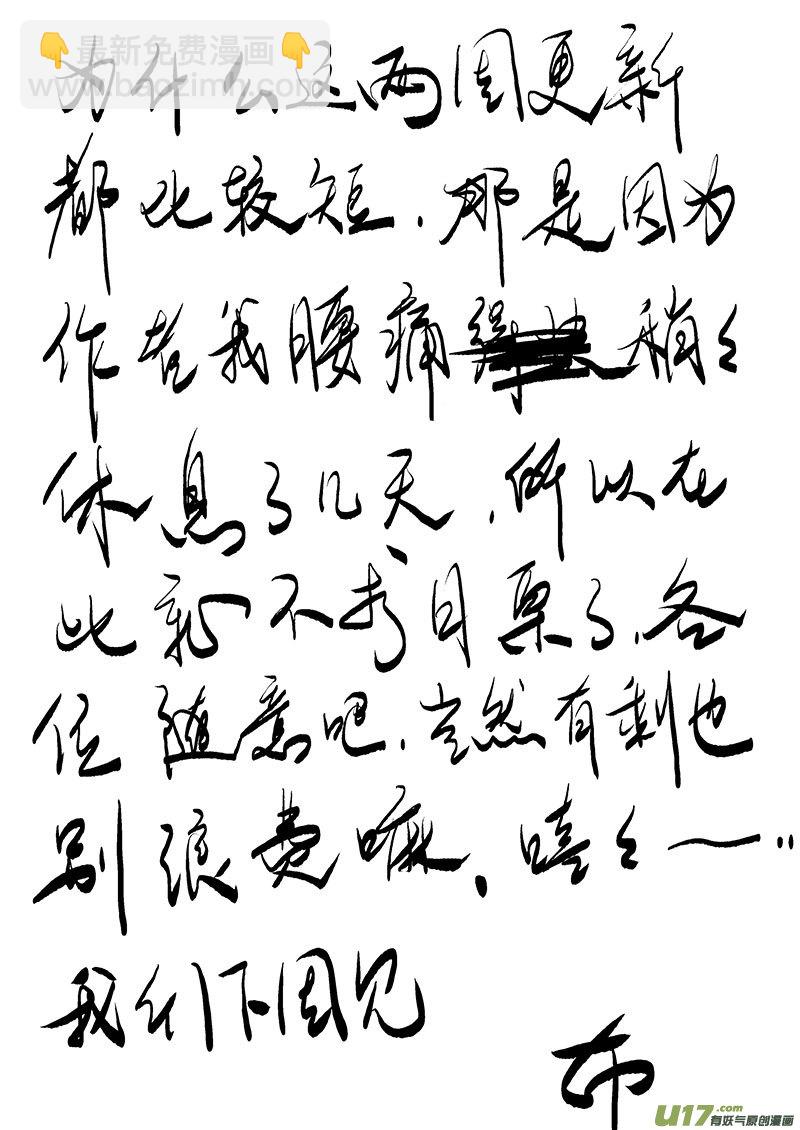 👇最新免费漫画👇
www.baozimh.com
为什么这两周更新
都比较短.那是因为
作者我腰痛得 稍々
休息了几天,所以在
此就不求月票了.各
位随意吧.当然有剩也
别浪费嘛、嘻々～..
我们下周见
布
U17.com
有妖气原创漫画